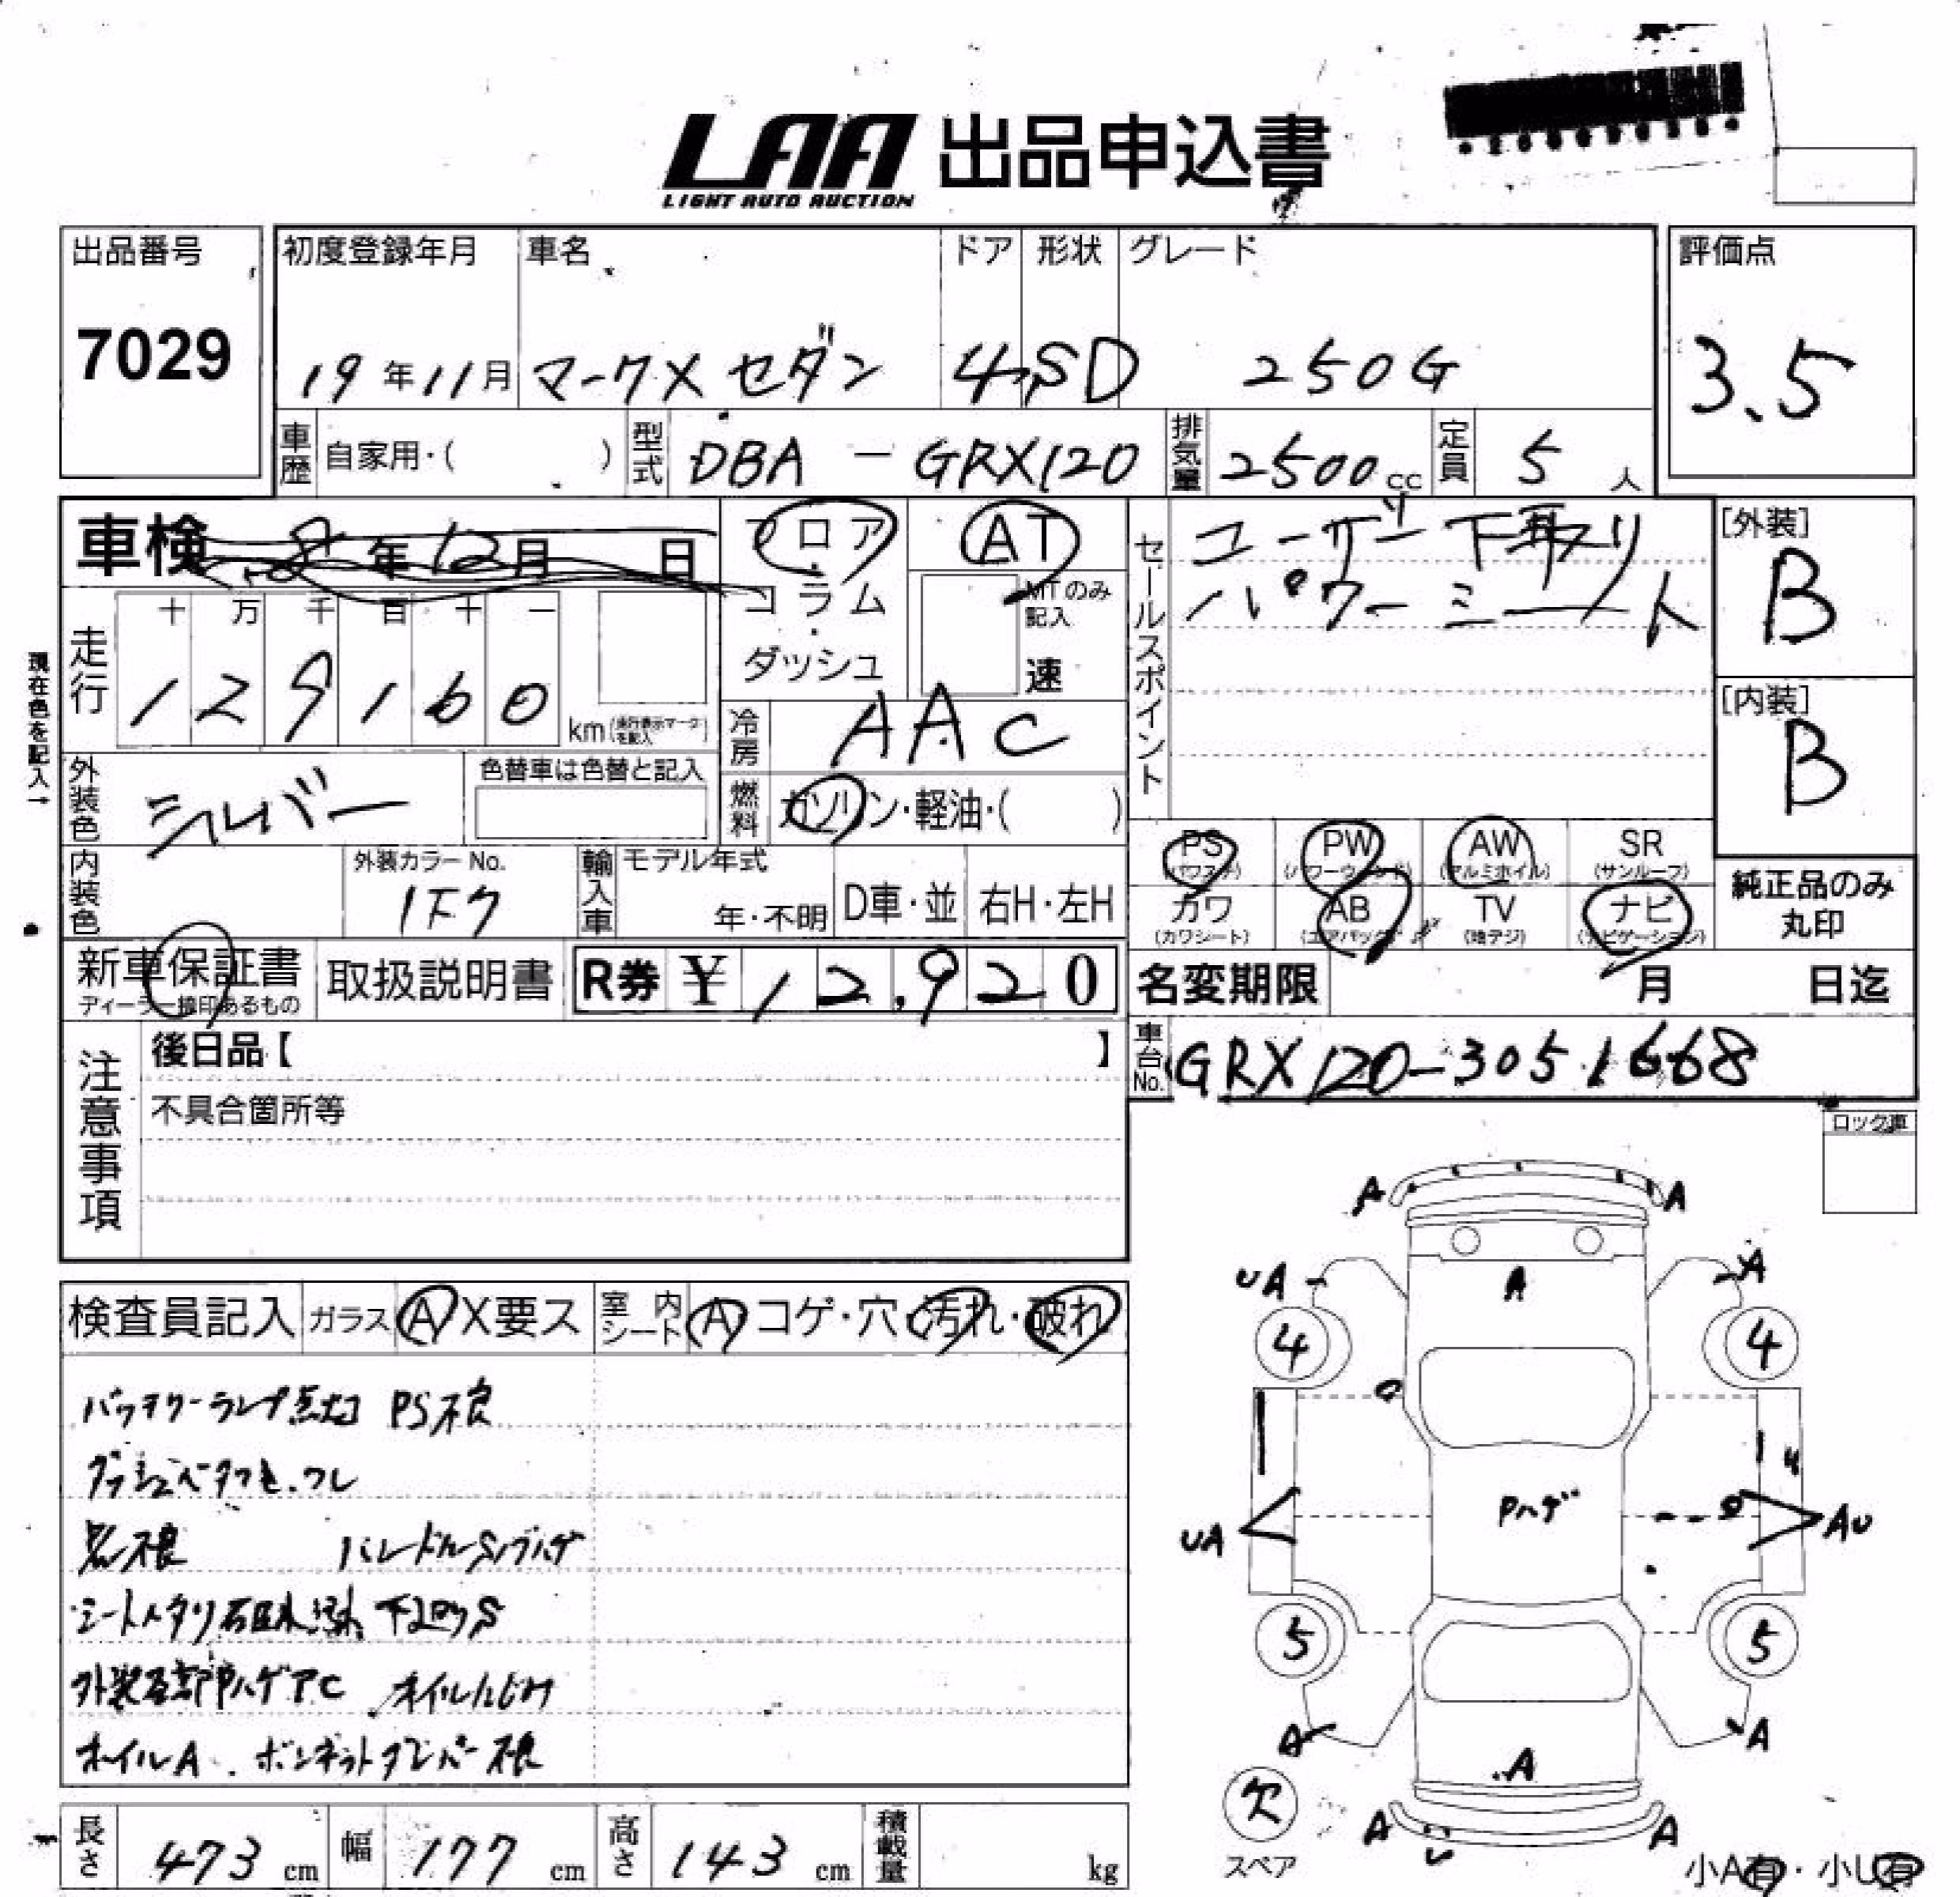 LAA 出品申込書
LIGHT AUTO AUCTION
出品番号
7029
初度登録年月 車名 ドア 形状 グレード
19年11月 マークX セダン 4 SD 250G
評価点
3.5
車歴 自家用・( ) 型式 DBA - GRX120 排気量 2500cc 定員 5人
車検 年12月 日
フロア・コラム・ダッシュ
AT
MTのみ記入
速
セールスポイント
ユーザー下取り
パワーシート
[外装]
B
[内装]
B
現在色を記入→
走行 十 万 千 百 十 一
129160 km (走行表示マークを記入)
冷房 AAC
外装色 シルバー 色替車は色替と記入
燃料 ガソリン・軽油・( )
内装色 外装カラーNo.
1F7
輸入車 モデル年式
年・不明 D車・並 右H・左H
PS (パワステ) PW (パワーウィンド) AW (アルミホイル) SR (サンルーフ)
カワ (カワシート) AB (エアバック) TV (地デジ) ナビ (ナビゲーション)
純正品のみ
丸印
新車保証書
ディーラー捺印あるもの
取扱説明書 R券 ¥12,920
名変期限 月 日迄
車台No. GRX120-3051668
注意事項
後日品【 】
不具合箇所等
ロック車
検査員記入 ガラス A X要ス 室内シート A コゲ・穴・汚れ・破れ
バッテリーランプ点灯 PS不良
シートヘタリ 下回りS
外装各部ハゲAC オイルにじみ
ホイルA . ボンネットダンパー不良
A A
UA A A
4 4
U
Pハゲ
UA AU
5 5
A A
A
欠
スペア
A A
U
小A有・小U有
長さ 473 cm 幅 177 cm 高さ 143 cm 積載量 kg